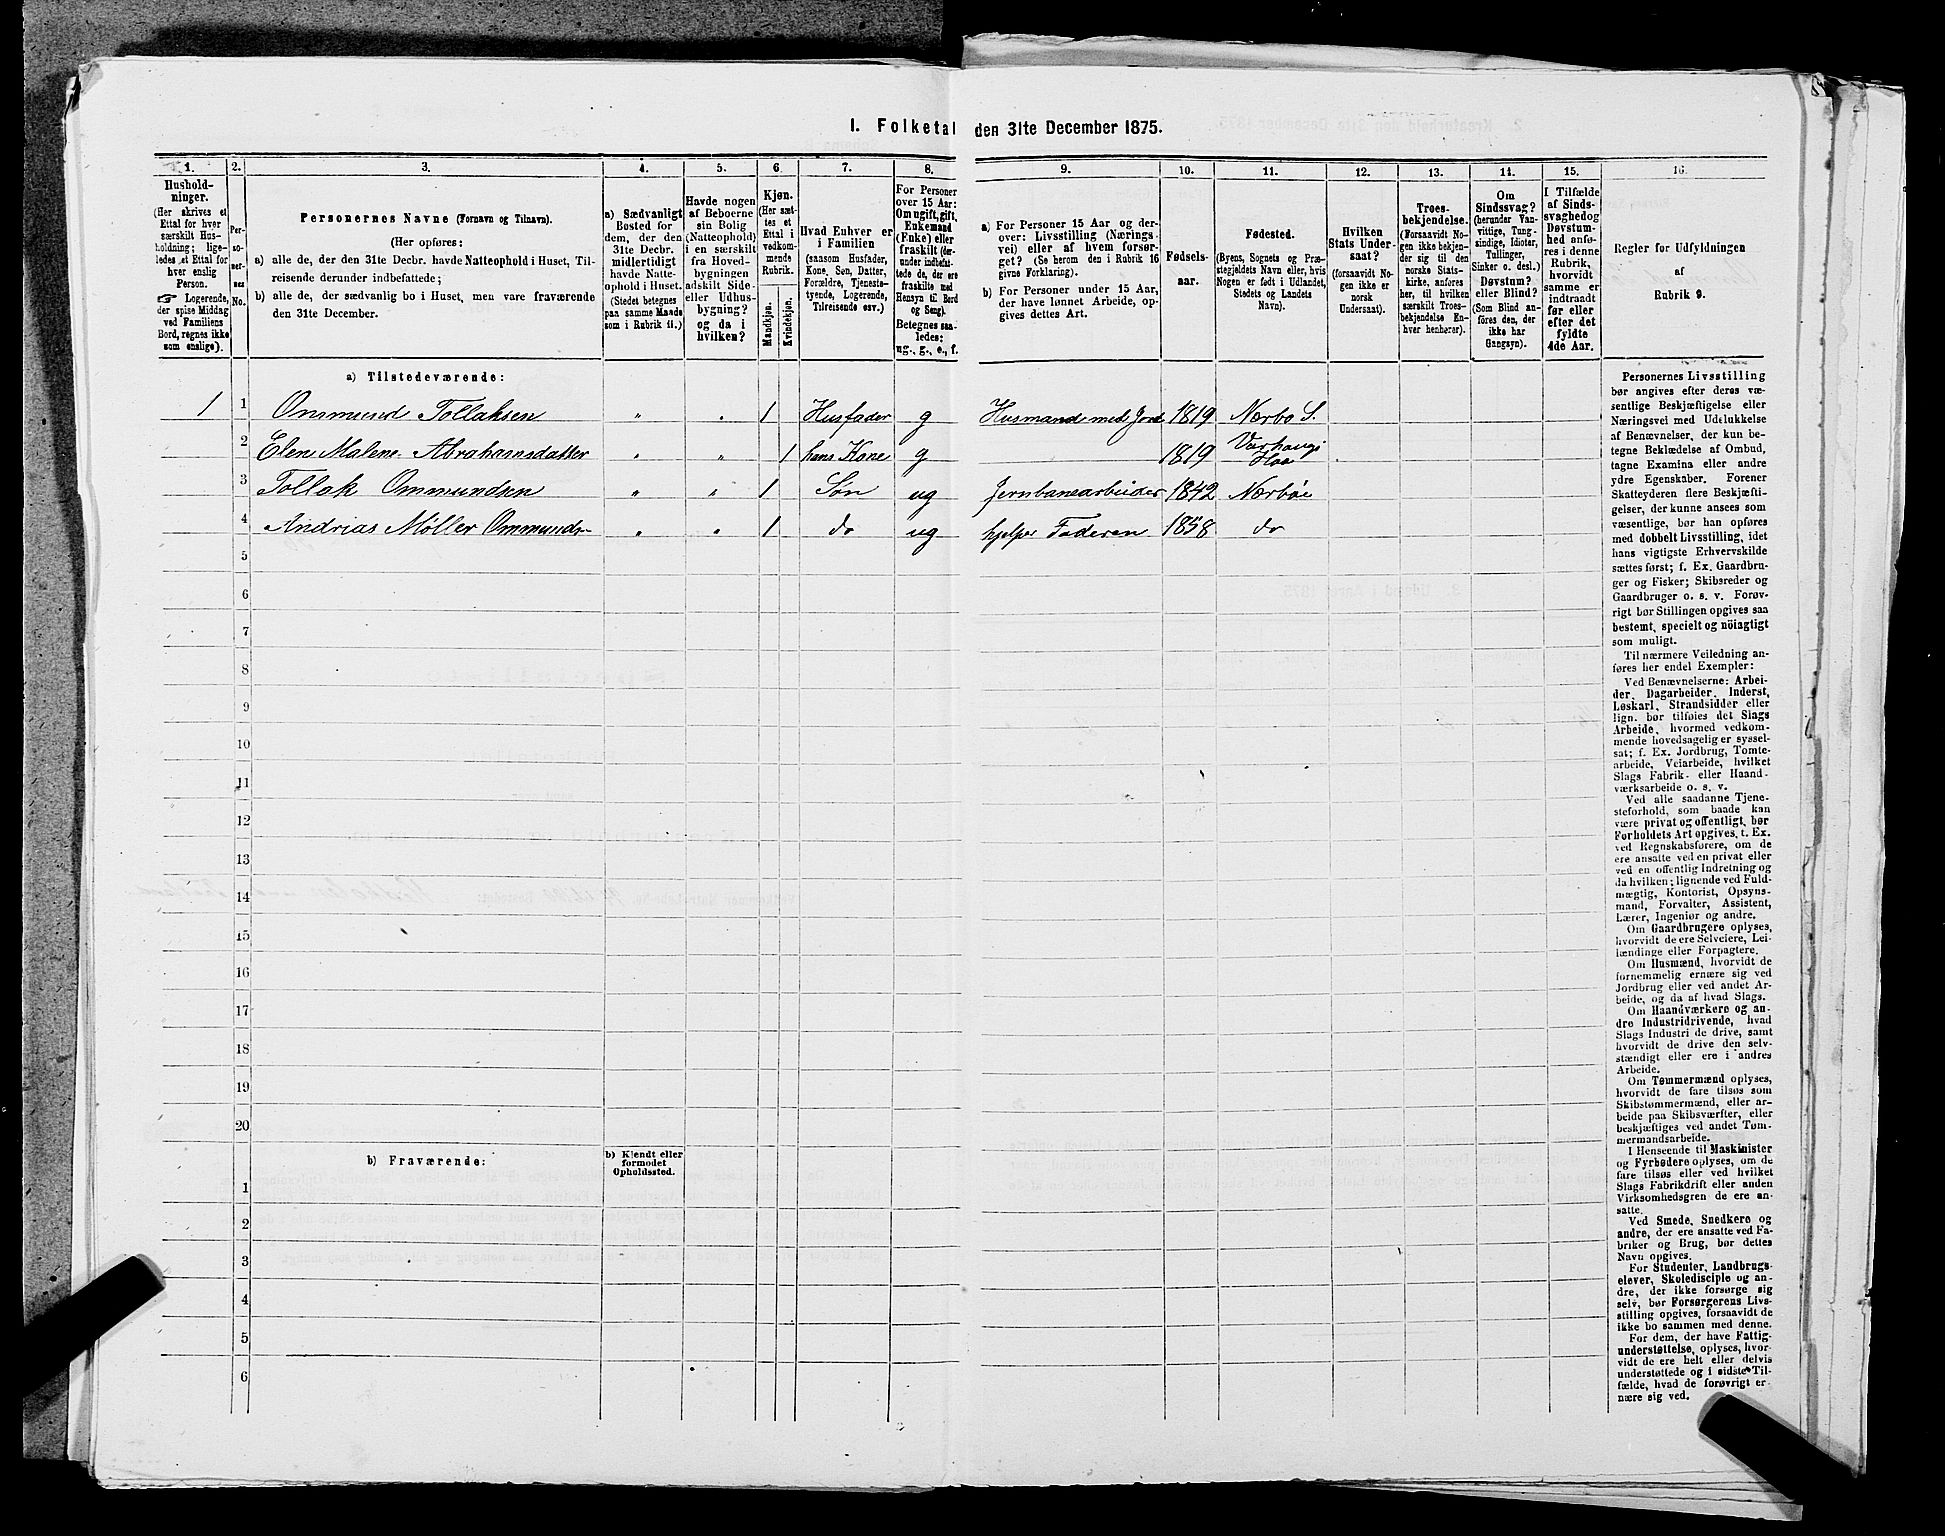 1. Folketal den 31te December 1875.
1.
Hushold-
ninger.
(Her skrives et
Ettal for hver
særskilt Hus-
holdning; lige-
ledes et Ettal for
hver enslig
Person.
☞ Logerende,
der spise Middag
ved Familiens
Bord, regnes ikke
som enslige).
2.
Per-
so-
ner-
nes
No.
3.
Personernes Navne (Fornavn og Tilnavn).
(Her opføres:
a) alle de, der den 31te Decbr. havde Natteophold i Huset, Til-
reisende derunder indbefattede;
b) alle de, der sædvanlig bo i Huset, men vare fraværende
den 31te December.
4.
a) Sædvanligt
Bosted for
dem, der den
31te Decbr.
midlertidigt
havde Natte-
ophold i Huset.
(Stedet betegnes
paa samme Maade
som i Rubrik 11.)
5.
Havde nogen
af Beboerne
sin Bolig
(Natteophold)
i en særskilt
fra Hoved-
bygningen
adskilt Side-
eller Udhus-
bygning?
og da i
hvilken?
6.
Kjøn.
(Her sæt-
tes et
Ettal i
vedkom-
mende
Rubrik.
Mandkjøn.
Kvindekjøn.
7.
Hvad Enhver er
i Familien
(saasom Husfader,
Kone, Søn, Datter,
Forældre, Tjeneste-
tyende, Logerende,
Tilreisende osv.)
8.
For Personer
over 15 Aar:
Om ugift, gift,
Enkemand
(Enke) eller
fraskilt (der-
under indbefat-
tede de, der ere
fraskilte med
Hensyn til Bord
og Seng).
Betegnes saa-
ledes:
ug., g., e., f.
9.
a) For Personer 15 Aar og der-
over: Livsstilling (Nærings-
vei) eller af hvem forsør-
get? (Se herom den i Rubrik 16
givne Forklaring).
b) For Personer under 15 Aar,
der have lønnet Arbeide, op-
gives dettes Art.
10.
Fødsels-
aar.
11.
Fødested.
(Byens, Sognets og Præ-
stegjeldets Navn eller, hvis
Nogen er født i Udlandet,
Stedets og Landets
Navn).
12.
Hvilken
Stats Under-
saat?
(forsaavidt No-
gen ikke er
norsk
Undersaat).
13.
Troes-
bekjendelse.
(Forsaavidt No-
gen ikke bekjen-
der sig til den
norske Stats-
kirke, anføres
her, til hvilken
særskilt Troes-
bekjendelse En-
hver henhører).
14.
Om
Sindssvag?
(herunder Van-
vittige, Tung-
sindige, Idioter,
Tullinger,
Sinker o. desl.)
Døvstum?
eller Blind?
(Som Blind an-
føres den, der
ikke har
Gangsyn).
15.
I Tilfælde
af Sinds-
svaghed og
Døvstum-
hed anfø-
res i denne
Rubrik,
hvorvidt
samme er
indtraadt
før eller
efter det
fyldte
4de Aar.
16.
Regler for Udfyldningen
af
Rubrik 9.
a) Tilstedeværende:
1 1 Ommund Tollaksen „ „ 1 Husfader g Husmand med Jord 1819 Nærbø S.
2 Elen Malene Abrahamsdatter „ „ 1 hans Kone g 1819 Varhaugs Haa
3 Tollak Ommundsen „ „ 1 Søn ug Jernbanearbeider 1842 Nærbøe
4 Andrias Møller Ommunds- „ „ 1 do ug hjelper Faderen 1858 do
5
6
7
8
9
10
11
12
13
14
15
16
17
18
19
20
b) Fraværende:
b) Kjendt eller
formodet
Opholdssted.
1
2
3
4
5
6
Personernes Livsstilling
bør angives efter deres væ-
sentlige Beskjæftigelse eller
Næringsvei med Udelukkelse
af Benævnelser, der kun be-
tegne Beklædelse af Ombud,
tagne Examina eller andre
ydre Egenskaber. Forener
Skatteyderen flere Beskjæfti-
gelser, der kunne ansees som
væsentlige, bør han opføres
med dobbelt Livsstilling, idet
hans vigtigste Erhvervskilde
sættes først; f. Ex. Gaardbru-
ger og Fisker; Skibsreder og
Gaardbruger o. s. v. Forøv-
rigt bør Stillingen opgives saa
bestemt, specielt og nöiagtigt
som muligt.
Til nærmere Veiledning an-
føres her endel Exempler:
Ved Benævnelserne: Arbei-
der, Dagarbeider, Inderst,
Løskarl, Strandsidder eller
lign. bør tilføies det Slags
Arbeide, hvormed vedkom-
mende hovedsagelig er syssel-
sat; f. Ex. Jordbrug, Tomte-
arbeide, Veiarbeide, hvilket
Slags Fabrik- eller Haand-
værksarbeide o. s. v.
Ved alle saadanne Tjene-
steforhold, som baade kan
være privat og offentligt, bør
Forholdets Art opgives, t. Ex.
ved Regnskabsførere, om de
ere ansatte ved en privat eller
ved en offentlig Indretning og
da hvilken; lignende ved Fuld-
mægtig, Kontorist, Opsyns-
mand, Forvalter, Assistent,
Lærer, Ingeniør og andre.
Om Gaardbrugere oplyses,
hvorvidt de ere Selveiere, Lei-
lændinge eller Forpagtere.
Om Husmænd, hvorvidt de
fornemmelig ernære sig ved
Jordbrug eller ved andet Ar-
beide, og da af hvad Slags.
Om Haandværkere og an-
dre Industridrivende, hvad
Slags Industri de drive, samt
hvorvidt de drive den selv-
stændigt eller ere i andres
Arbeide.
Om Tømmermænd oplyses,
hvorvidt de fare tilsøs som
Skibstømmermænd, eller ar-
beide paa Skibsværfter, eller
beskjæftiges ved andet Tøm-
mermandsarbeide.
I Henseende til Maskinister
og Fyrbødere oplyses, om de
fare tilsøs eller ved hvilket
Slags Fabrikdrift eller anden
Virksomhedsgren de ere an-
satte.
Ved Smede, Snedkere og
andre, der ere ansatte ved Fa-
briker og Brug, bør dettes
Navn opgives.
For Studenter, Landbrugs-
elever, Skoledisciple og an-
dre, der ikke forsørge sig
selv, bør Forsørgerens Livs-
stilling opgives, forsaavidt de
ikke bo sammen med denne.
For dem, der have Fattig-
understøttelse, oplyses, hvor-
vidt de ere helt eller delvis
understøttede og i sidste Til-
fælde, hvad de forøvrigt er-
nære sig ved.